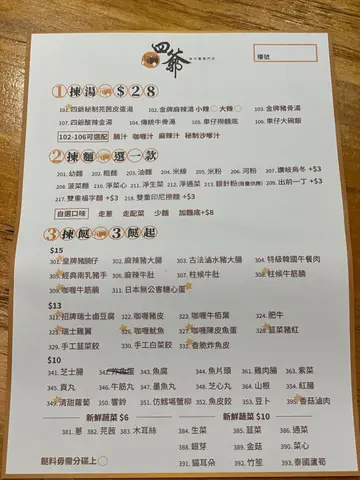 四爺
車仔麵專門店
檯號
1 揀湯 $28
101.四爺秘制芫茜皮蛋湯 102.金牌麻辣湯 小辣 大辣 103.金牌豬骨湯
107.四爺酸辣金湯 104.傳統牛骨湯 105.車仔撈麵底 106.車仔大碗飯
102-106可選配 腩汁 咖喱汁 麻辣汁 秘制沙嗲汁
2 揀麵 選一款
201.幼麵 202.粗麵 203.油麵 204.米線 205.米粉 206.河粉 207.讚岐烏冬 +$3
208.菠菜麵 210.淨菜心 211.淨生菜 212.淨通菜 213.銀針粉(限量供應) 209.出前一丁 +$3
217.雙重福字麵 +$3 218.雙重印尼撈麵 +$3
自選口味 走蔥 走配菜 少麵 加麵底+$8
3 揀餸 3餸起
$15
301.皇牌豬腕仔 302.麻辣豬大腸 303.古法滷水豬大腸 304.特級韓國午餐肉
305.經典南乳豬手 306.麻辣牛肚 307.柱候牛肚 308.柱候牛筋腩
309.咖喱牛筋腩 311.日本無公害糖心蛋
$13
321.招牌瑞士鹵豆腐 322.咖喱豬皮 323.咖喱牛栢葉 324.肥牛
325.瑞士雞翼 326.咖喱魷魚 327.咖喱陳皮魚蛋 328.韮菜豬紅
329.手工韮菜餃 330.手工白菜餃 331.香脆炸魚皮
$10
341.芝士腸 342.炸魚蛋 343.魚腐 344.魚片頭 361.雞肉腸 363.紫菜
345.貢丸 346.牛筋丸 347.墨魚丸 348.芝心丸 364.山根 354.紅腸
349.清甜蘿蔔 350.響鈴 351.仿鱈場蟹柳 352.魚皮餃 353.豆卜 395.香菇滷肉
新鮮蔬菜 $6 新鮮蔬菜 $10
381.蔥 382.芫茜 383.木耳絲 384.生菜 385.韮菜 386.通菜
388.銀芽 389.金菇 390.菜心
391.貓耳朵 392.竹笙 393.泰國蘆筍
餸料毋需分碟上